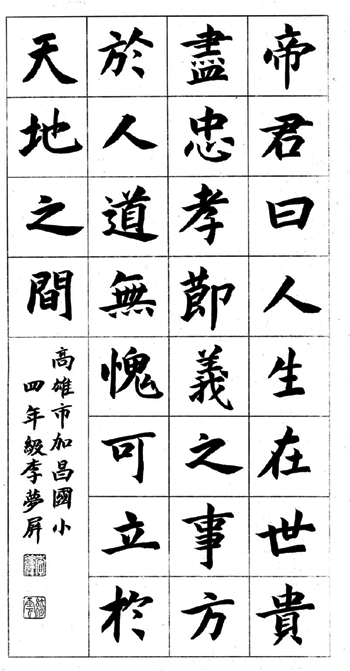 帝君曰人生在世貴
盡忠孝節義之事方
於人道無愧可立於
天地之間
高雄市加昌國小
四年級李夢屏